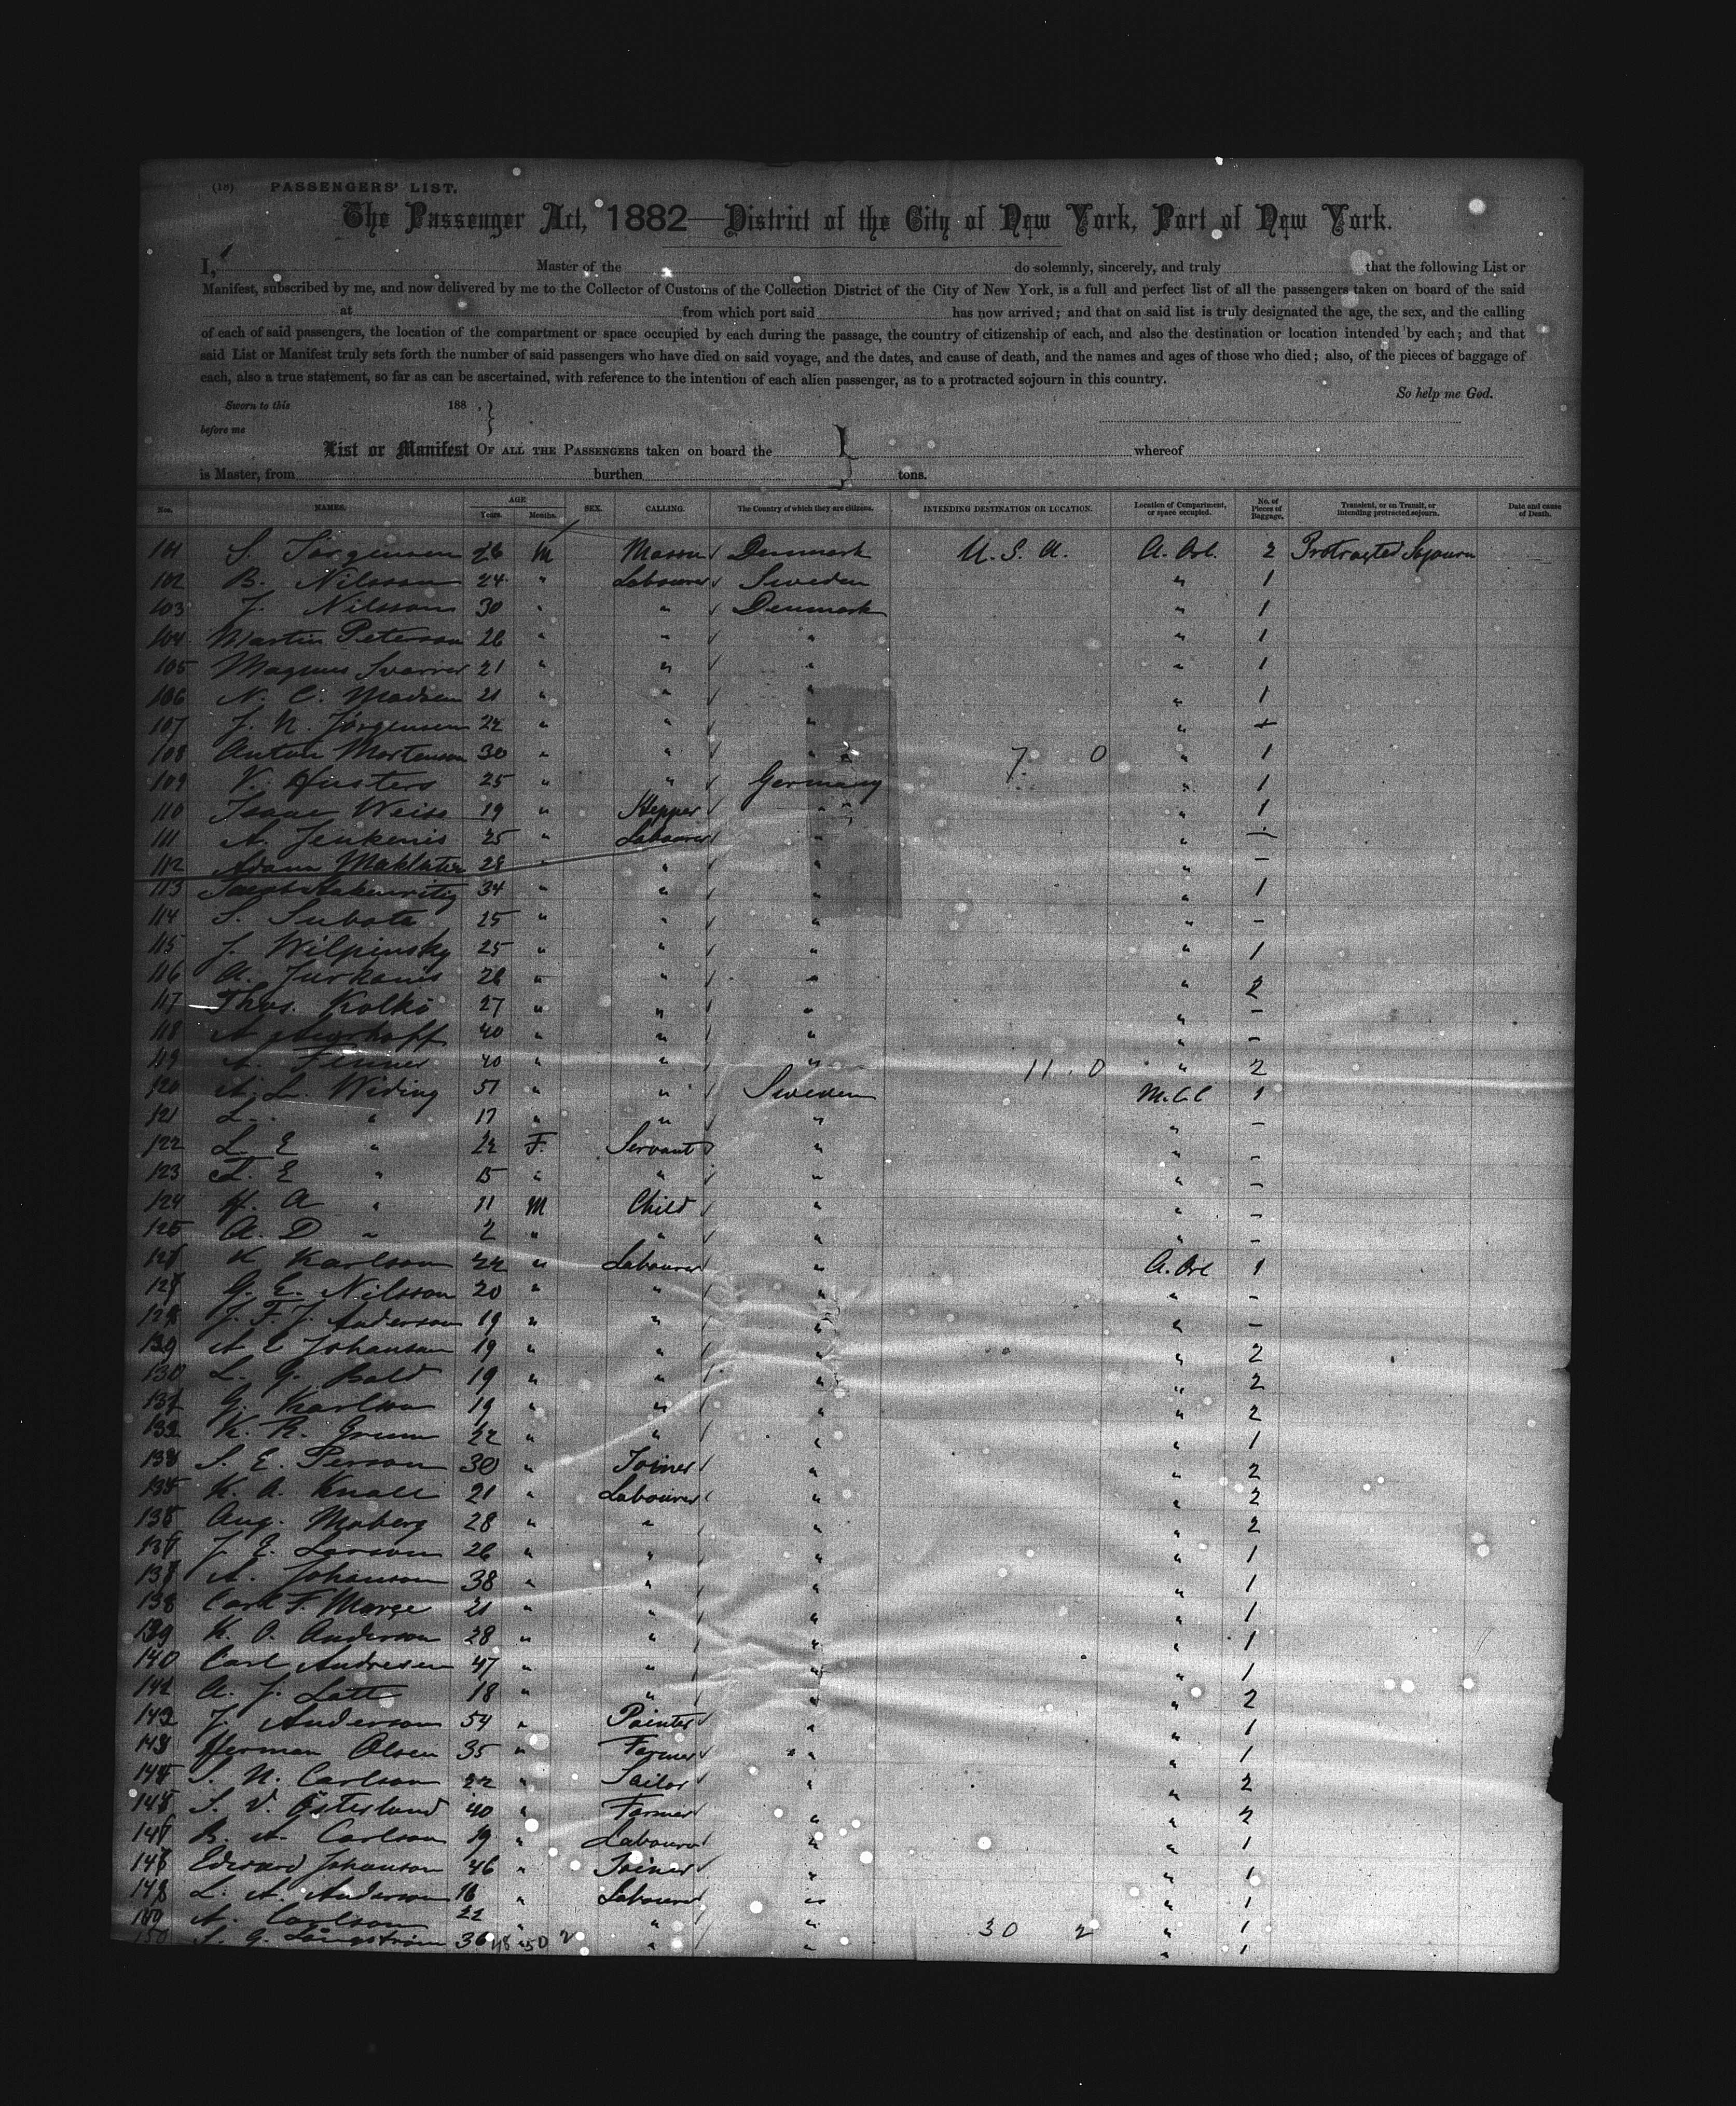 (18) PASSENGERS' LIST.
The Passenger Act, 1882—District of the City of New York, Port of New York.
I, Master of the do solemnly, sincerely, and truly that the following List or
Manifest, subscribed by me, and now delivered by me to the Collector of Customs of the Collection District of the City of New York, is a full and perfect list of all the passengers taken on board of the said
at from which port said has now arrived; and that on said list is truly designated the age, the sex, and the calling
of each of said passengers, the location of the compartment or space occupied by each during the passage, the country of citizenship of each, and also the destination or location intended by each; and that
said List or Manifest truly sets forth the number of said passengers who have died on said voyage, and the dates, and cause of death, and the names and ages of those who died; also, of the pieces of baggage of
each, also a true statement, so far as can be ascertained, with reference to the intention of each alien passenger, as to a protracted sojourn in this country.
So help me God.
Sworn to this 188 . }
before me
List or Manifest OF ALL THE PASSENGERS taken on board the whereof
is Master, from burthen tons.
Nos. NAMES. AGE Years. Months. SEX. CALLING. The Country of which they are citizens. INTENDING DESTINATION OR LOCATION. Location of Compartment, or space occupied. No. of Pieces of Baggage. Transient, or on Transit, or intending protracted sojourn. Date and cause of Death.
101 S. Jörgensen 26 M Mason Denmark U. S. A. 2 Protracted Sojourn
102 B. Nilsson 24 " Labourer Sweden " 1
103 J. Nilsson 30 " " Denmark " 1
104 Martin Peterson 26 " " " " 1
105 Magnus 21 " " " " 1
106 N. C. Madsen 21 " " " " 1
107 J. N. Jörgensen 22 " " " "
108 Anton Mortenson 30 " " " 7 0 " 1
109 V. 25 " " Germany " 1
110 Isaac Weiss 19 " " " 1
111 A. Jenkenis 25 " Labourer " " —
112 Adam 28 " " " " —
113 34 " " " " 1
114 S. Subota 25 " " " " —
115 J. Wilpinsky 25 " " " " 1
116 A. Jurkanis 26 " " " " 2
117 Thos. Kolki 27 " " " " —
118 A. 40 " " " " —
119 A. Fenner 40 " " " 11 0 " 2
120 A. L. Widing 51 " " Sweden 1
121 L. " 17 " " " " —
122 L. E " 22 F. Servant " " —
123 E " 15 " " " " —
124 H. A " 11 M Child " " —
125 A. D " 2 " " " " —
K Karlsson 22 " Labourer " 1
G. E. Nilsson 20 " " " " —
J. F. J. Anderson 19 " " " " —
A E Johanson 19 " " " " 2
130 L. G. 19 " " " " 2
G. Karlson 19 " " " " 2
K. R. 22 " " " " 1
S. E. Person 30 " Joiner " " 2
K. A. Knall 21 " Labourer " " 2
Aug. Moberg 28 " " " " 2
J. E. Larson 26 " " " " 1
A. Johanson 38 " " " " 1
Carl F. 21 " " " " 1
139 K. O. Anderson 28 " " " " 1
140 Carl Andresen 47 " " " " 1
A. J. 18 " " " " 2
J. Anderson 54 " Painter " " 1
Herman Olsen 35 " Farmer " " 1
S. N. Carlson 22 " Sailor " " 2
S. V. Österlund 40 " Farmer " " 2
B. A. Carlson 19 " Labourer " " 1
Edward Johanson 46 " Joiner " " 1
L. A. Anderson 16 " Labourer " " 1
A. Carlson 22 " " " 30 2 " 1
150 S. G. 36 48 50 2 " " " 1